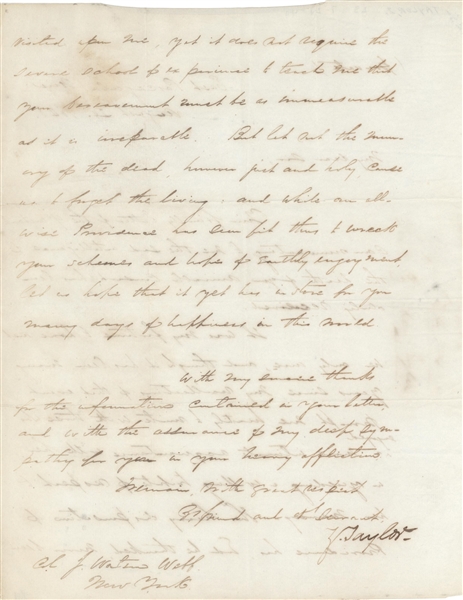 visited upon me, yet it does not require the
severe school of experience to teach me that
your bereavement must be as immeasurable
as it is irreparable. But let not the mem-
ory of the dead, however just and holy, cause
us to forget the living, and while an all-
wise Providence has seen fit thus to wreck
your schemes and hopes of earthly enjoyment,
let us hope that it yet has in store for you
many days of happiness in this world
With my sincere thanks
for the information contained in your letter,
and with the assurance of my deep sym-
pathy for you in your heavy affliction
I remain, with great respect
Yr friend and obt Servant
Z. Taylor
Col J. Watson Webb
New York